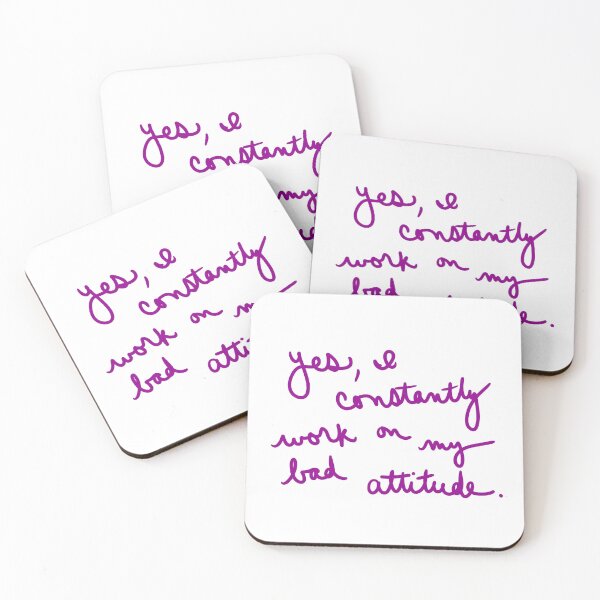 yes, I
constantly
my
yes, I
constantly
work on my
bad
yes, I
constantly
work on
bad
yes, I
constantly
work on my
bad attitude.